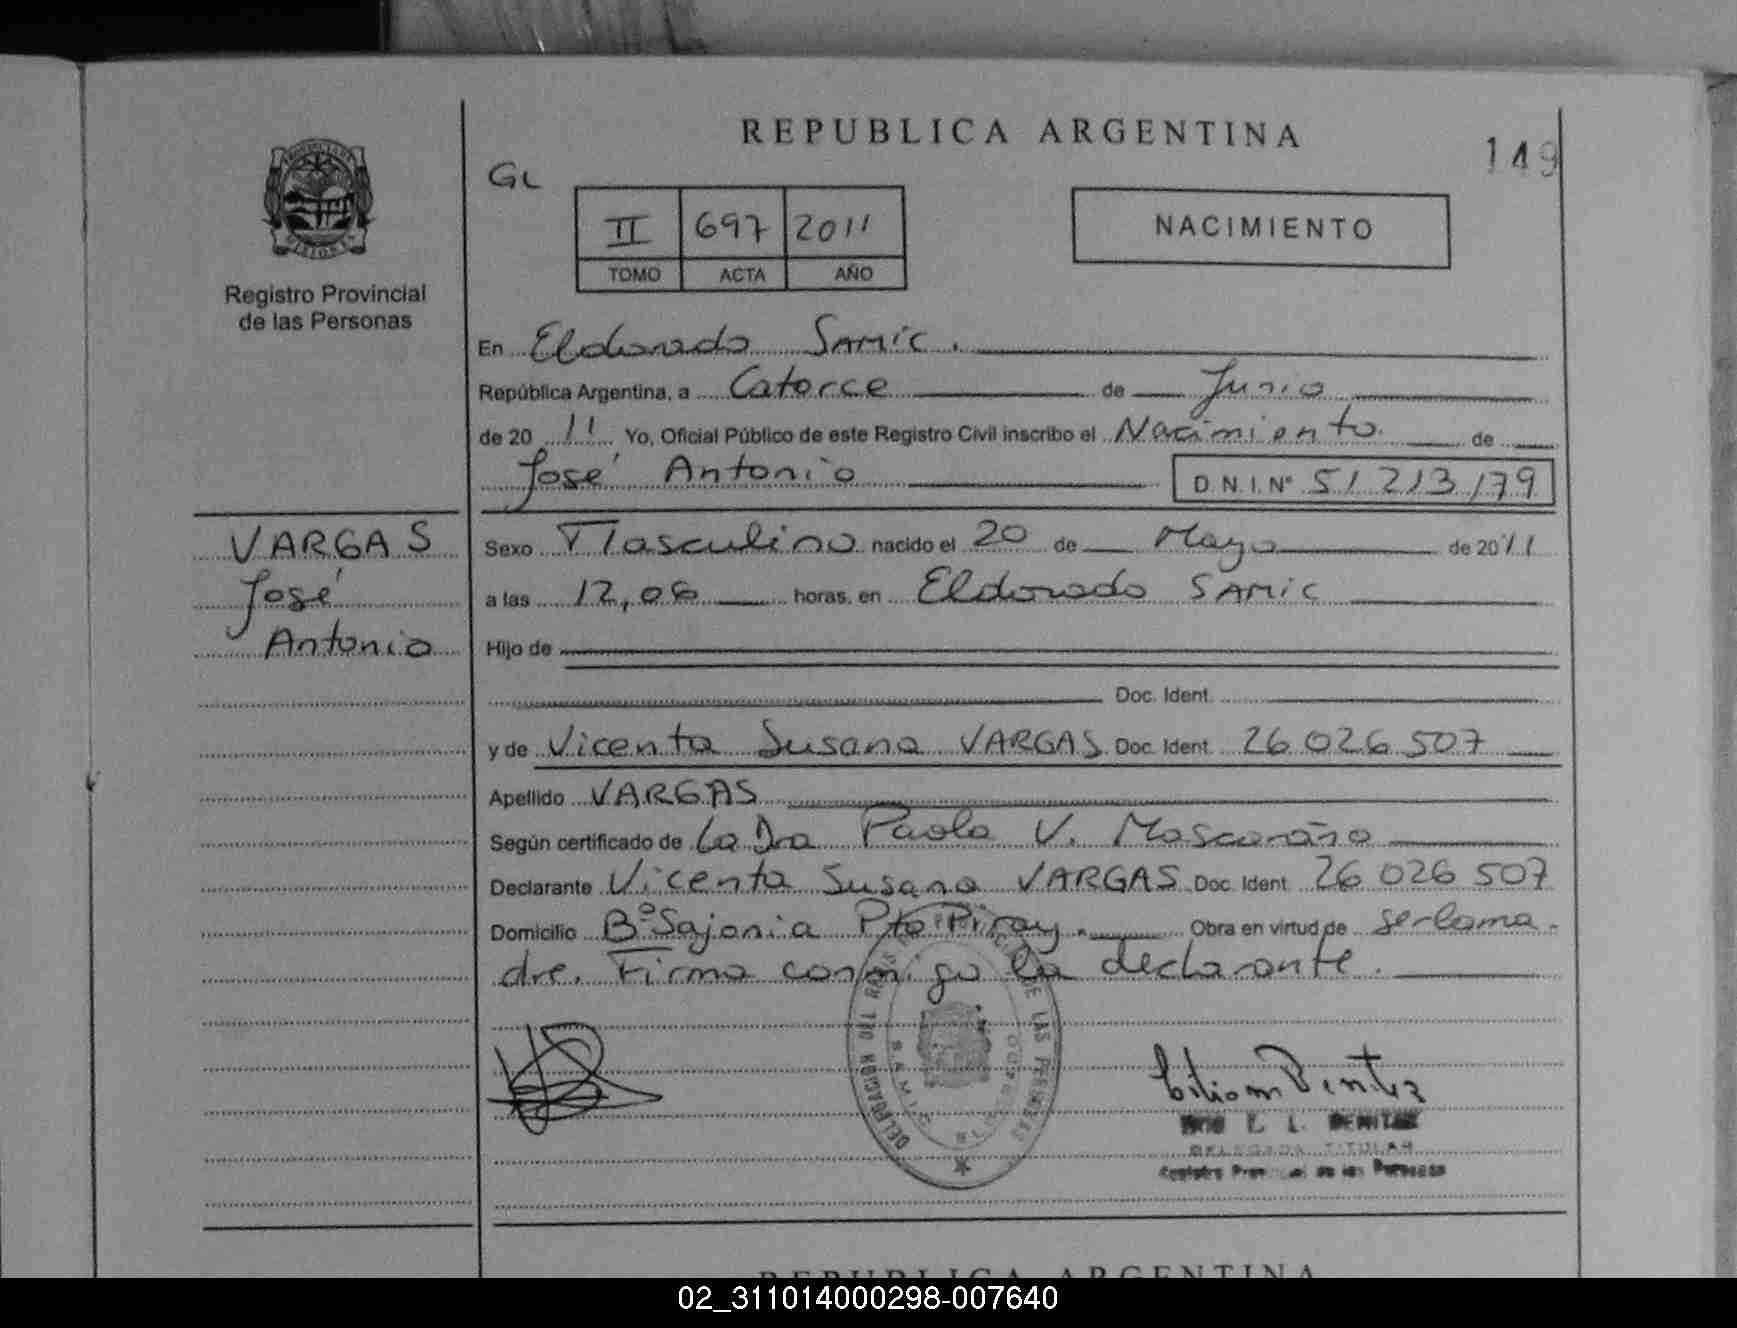 REPUBLICA ARGENTINA
149
GL
II 697 2011
TOMO ACTA AÑO
NACIMIENTO
Registro Provincial
de las Personas
En Eldorado SAMIC.
República Argentina, a Catorce de Junio
de 20 11 Yo, Oficial Público de este Registro Civil inscribo el Nacimiento de
José Antonio D.N.I. Nº 51 213 179
VARGAS
José
Antonio
Sexo Masculino nacido el 20 de Mayo de 2011
a las 12,06 horas, en Eldorado SAMIC
Hijo de
Doc. Ident.
y de Vicenta Susana VARGAS Doc. Ident. 26 026 507
Apellido VARGAS
Según certificado de La Dra Paola V.
Declarante Vicenta Susana VARGAS Doc. Ident. 26 026 507
Domicilio Bº Sajonia Pto Piray. Obra en virtud de ser la ma-
dre. Firma conmigo la declarante.
DELEGACION DEL REGISTRO PROVINCIAL DE LAS PERSONAS
SAMIC ELDORADO
Lilian Benitez
L. BENITEZ
DELEGADA TITULAR
Registro Provincial de las Personas
REPUBLICA ARGENTINA
02_311014000298-007640